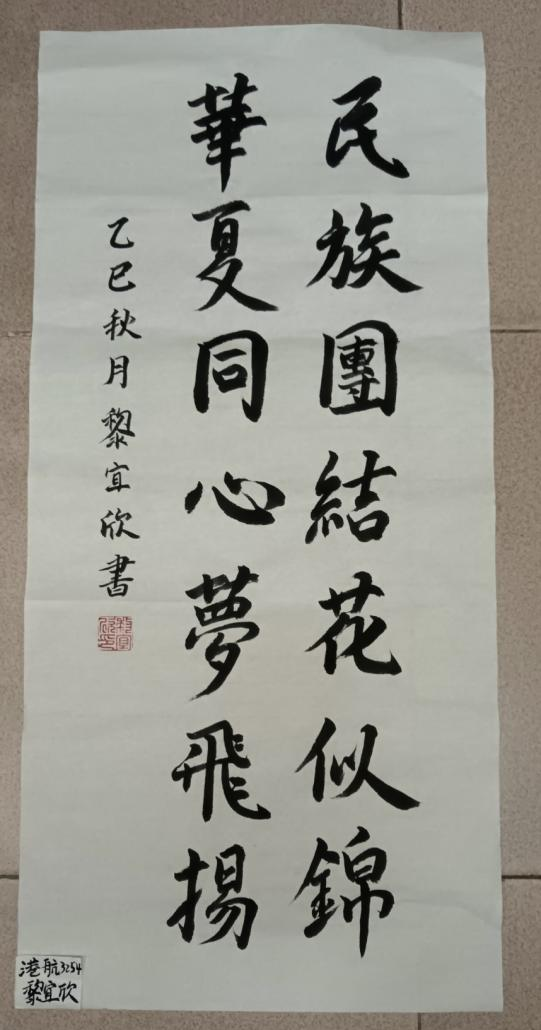 民族團結花似錦
華夏同心夢飛揚
乙巳秋月黎宜欣書
港航3254
黎宜欣